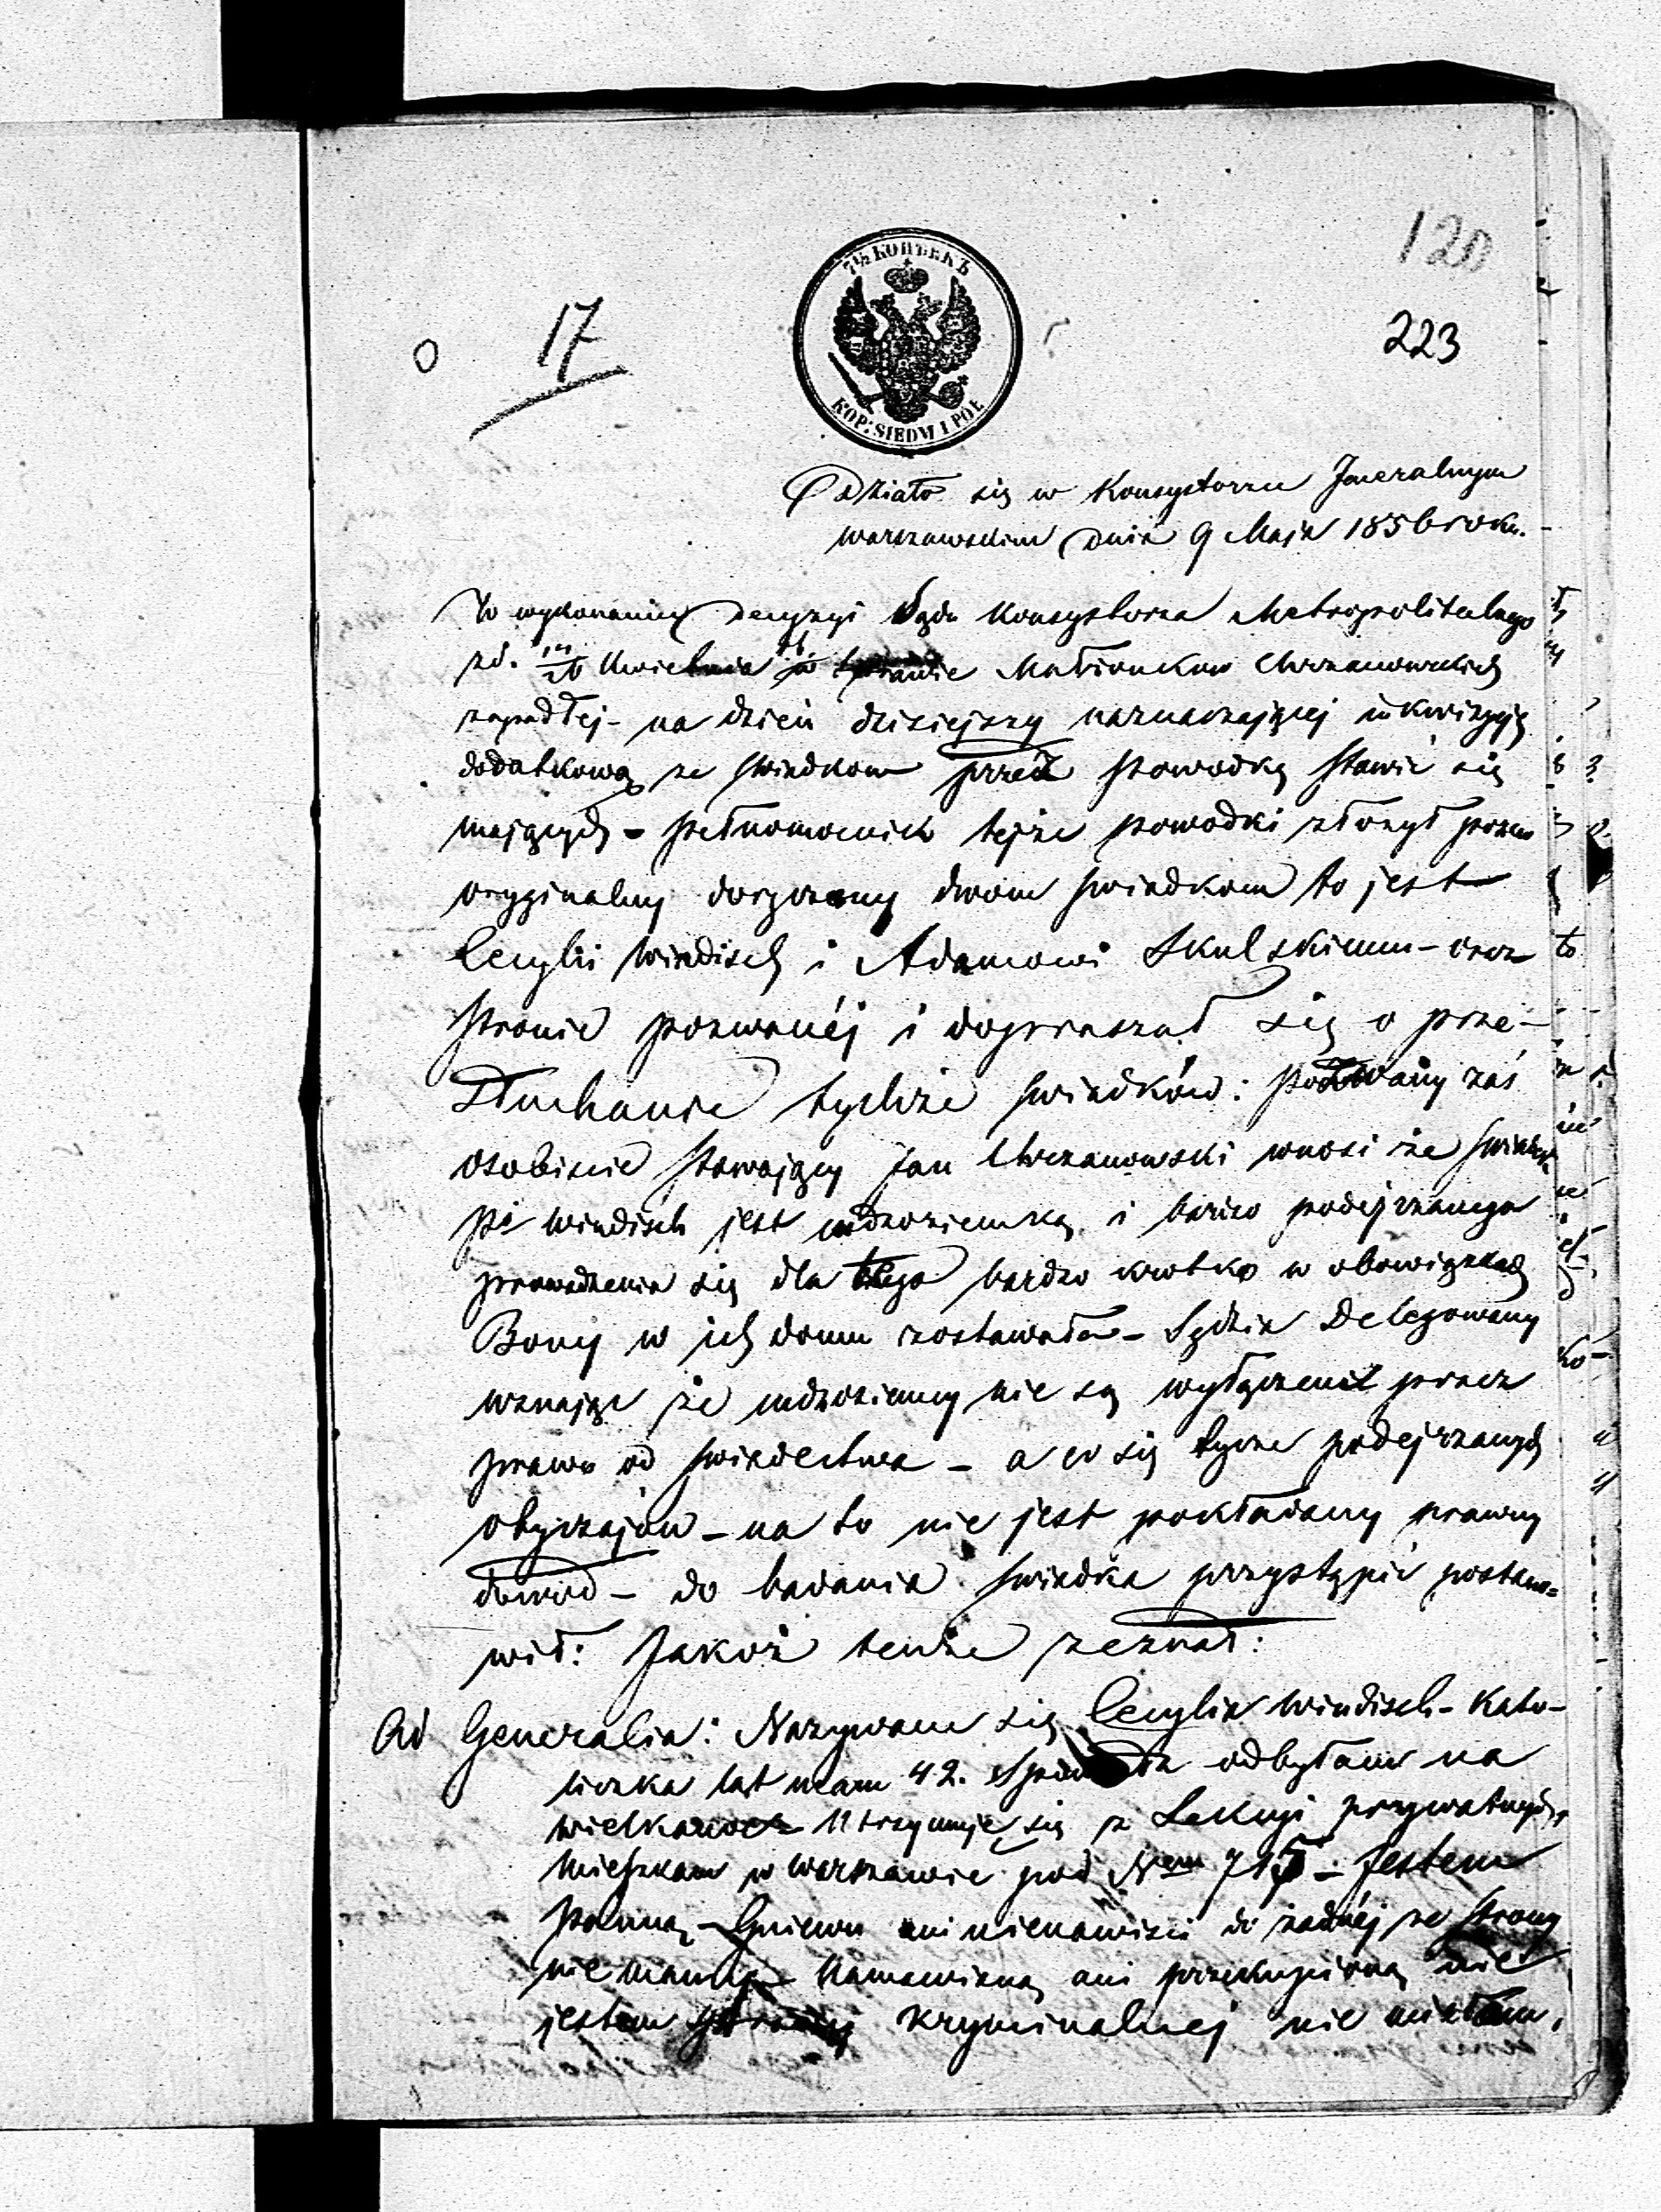 120
223
0 17
7½ КОПѢЕКЪ
KOP: SIEDM I PÓŁ
Działo się w Konsystorzu Jeneralnym
Warszawskim Dnia 9 Maja 1856 roku.
W wykonaniu Decyzyi Sądu Konsystorza Metropolitalnego
zd. Kwietnia w Sprawie Małżonków Chrzanowskich
zapadłej – na dzień dzisiejszy naznaczającej inkwizycyą
dodatkową ze świadków przez Powodkę stawić się
mających – Pełnomocnik tejże powodki złożył pozew
oryginalny doręczony dwom świadkom to jest
Cecylii Windisch i Adamowi Skulskiemu – oraz
stronie pozwanéj i dopraszał się o prze-
słuchanie tychże świadków: Pozwany zaś
osobiscie stawający Jan Chrzanowski wnosi że świadek
Windisch jest cudzoziemką i bardzo podejrzanego
prowadzenia się dla tego bardzo krotko w obowiązkach
Bony w ich domu zostawała – Sędzia Delegowany
uznając że cudzoziemcy nie są wyłączeni przez
prawo od świadectwa – a co się tycze podejrzanych
obyczajów – na to nie jest pokładany prawny
dowód – do badania świadka przystąpić postano=
wił: Jakoż tenże zeznał:
Ad Generalia: Nazywam się Cecylia Windisch – Kato-
liczka lat mam 42. Spowiedź odbyłam na
wielkanoc – Utrzymuje się z Lekcyi prywatnych,
Mieszkam w Warszawie pod Nem 715 – Jestem
Panną – Gniewu ani nienawisci do żadnéj ze strony
nie mam – Namawianą ani przekupioną nie
jestem kryminalnej nie miałam,